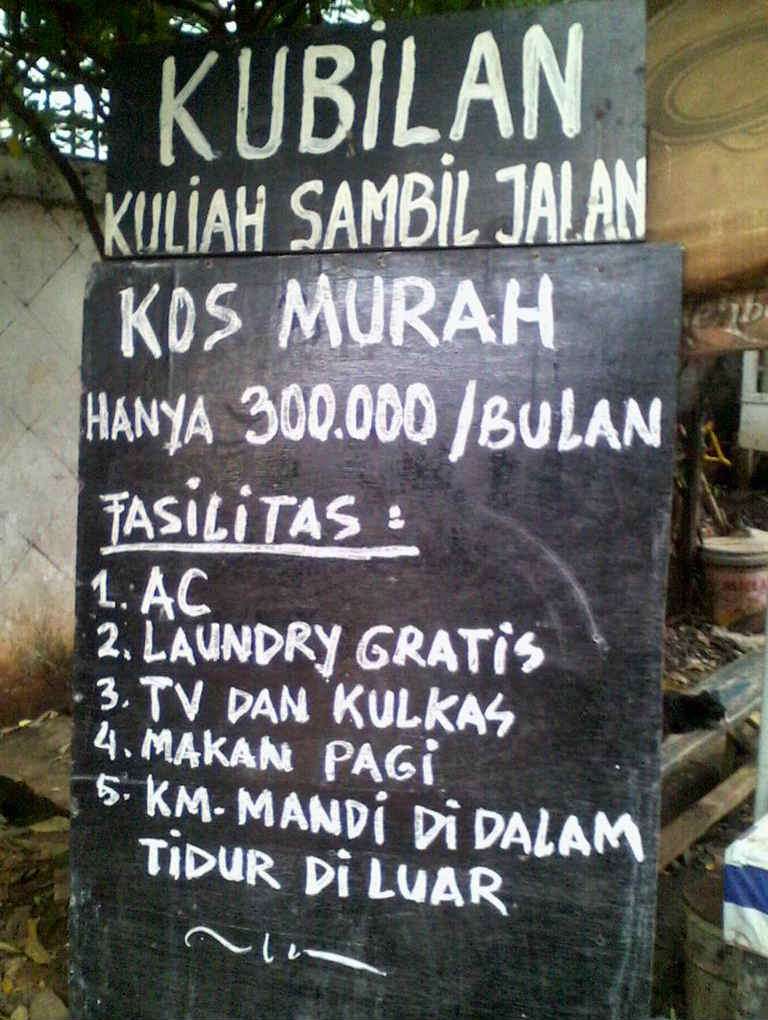 KUBiLAN
KULiAH SAMBiL JALAN
KOS MURAH
HANYA 300.000/BULAN
FASiLiTAS :
1. AC
2. LAUNDRY GRATiS
3. TV DAN KULKAS
4. MAKAN PAGi
5. KM. MANDi Di DALAM
TiDUR Di LUAR